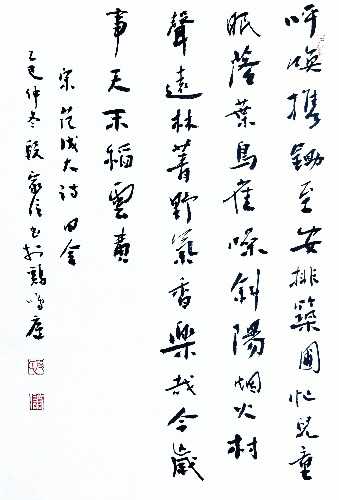 呼喚携鋤至安排築圃忙兒童
眠落葉鳥雀噪斜陽烟火村
聲遠林菁野氣香樂哉今歲
事天末稻雲黄
宋范成大詩田舍
乙巳仲冬段家书於鷄鳴庐